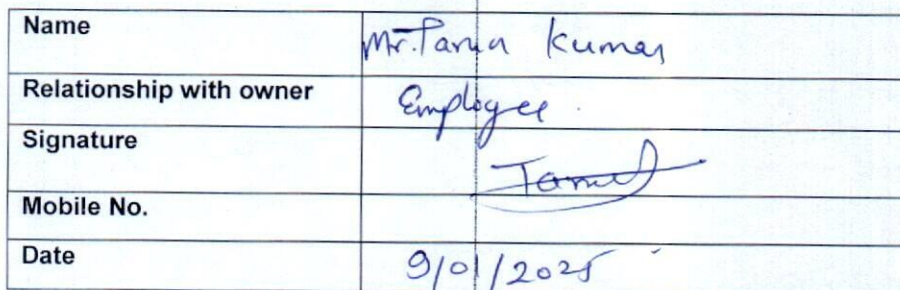 Name Mr. Tarun Kumar
Relationship with owner Employee.
Signature
Mobile No.
Date 9/01/2025